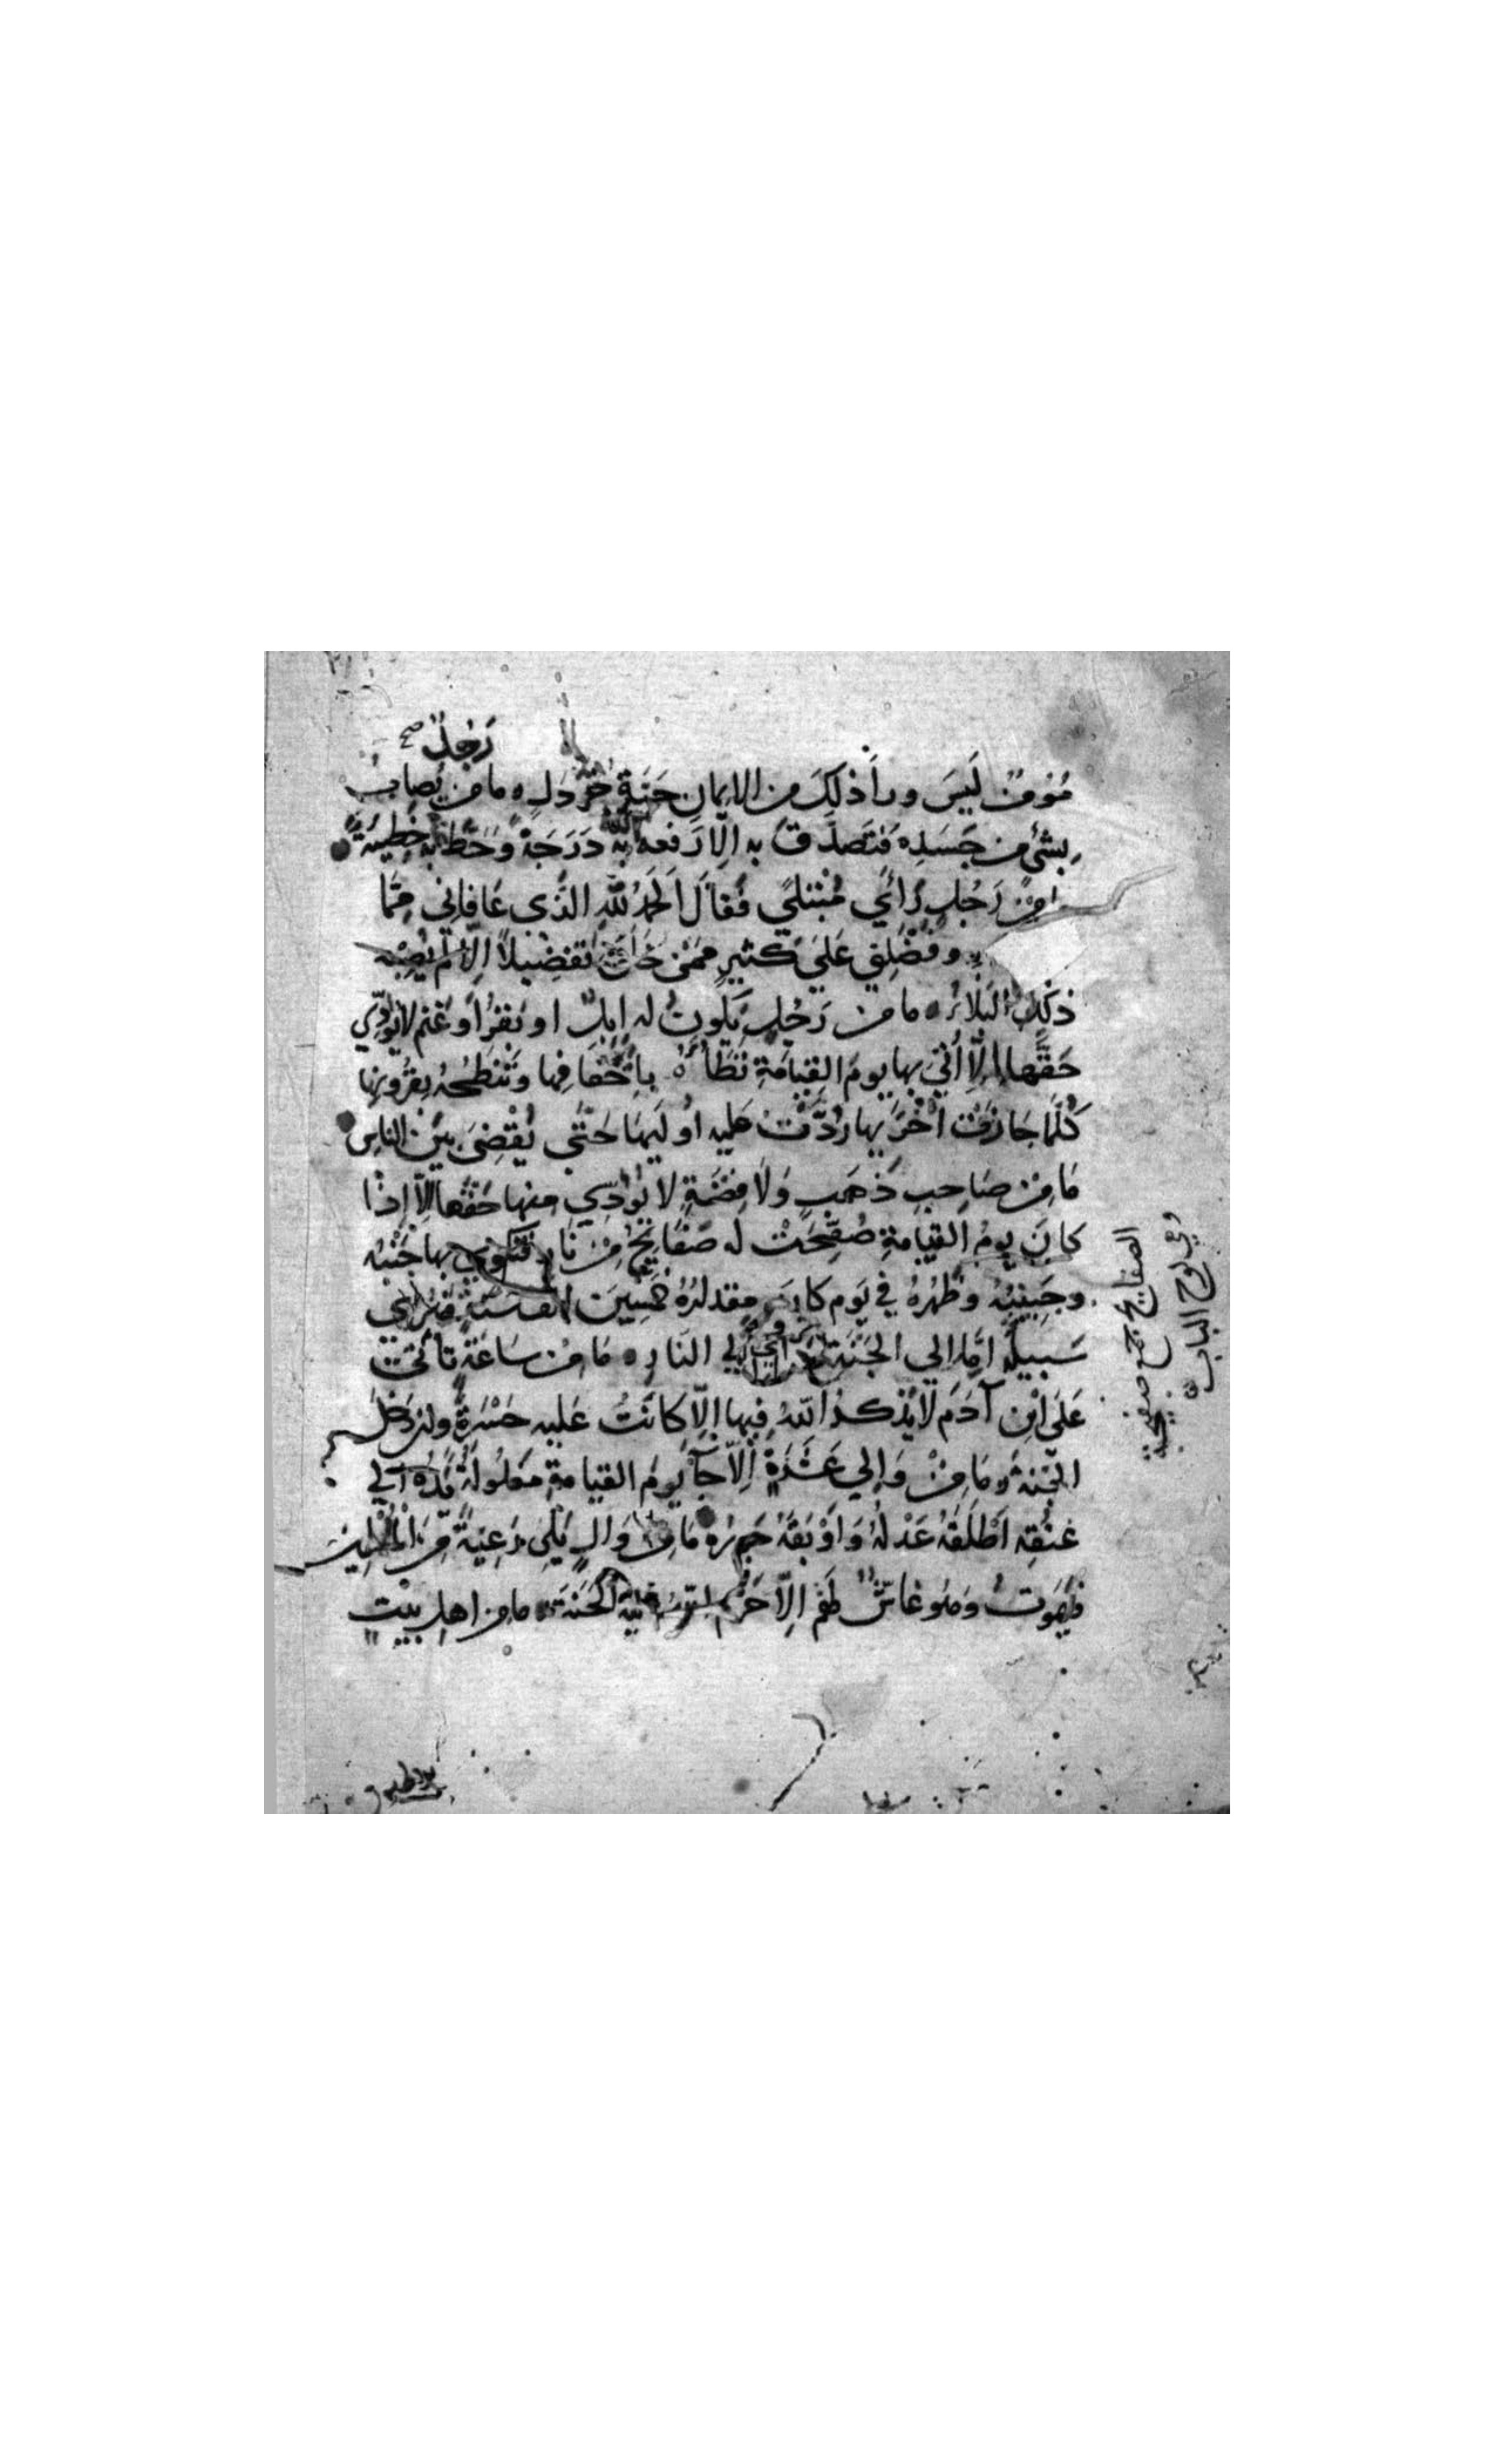 رَجُلٌ صح
مُؤمِنٌ لَيسَ وراَ ذلِكَ من الايمانِ حَبَةِ خَرْدَلٍ ه ما من يُصابُ
بشئٍ من جَسَدِه فَتَصَدَّقَ به اِلّا رَفعه الله به دَرَجَةً وَحَطَّ به خطِيئةً
مامِنْ رَجُلٍ رَائَي مُبْتَلَيً فَقالَ اَلحَمْدُ للّهِ الذَّي عَافانِي مِمَّا
وفَضّلنِي عَلَي كثيرٍ ممَنْ خَلَقَ تَفضْيلاً اِلّا لَمْ يُصِبْه
ذلِكَ البَلاَءُ ه ما من رَجُلٍ يَكونُ له اِبِلٌ او بَقَرٌ اَو غَنم لا يُؤدّي
حَقَّهَا اِلاّ اُتيَ بها يومَ القِيامَةِ تَطَأُهُ باِخْفَا فِها وَتَنْطَحُهُ بِقُرُونِها
كُلَّمَا جَازَتْ اُخْرَيها رُدَّتْ عليه اُولَيهَا حَتَّي يُقْضِيَ بَيْنَ الناسِ
مَا مِنْ صَاحِبِ ذَهَبٍ وَلاَ فِضَّةٍ لا يُؤَدّي مِنها حَقَّهَا اِلاّ اِذا
كانَ يومُ القيامةِ صُفِّحَتْ له صَفَائحُ مِنْ نَارٍ فتكوي بها جَنْبُه
وجَبِينُهُ وَظَهْرُهُ في يَومٍ كانَ مِقدارُهُ خَمْسِينَ الفَ سَنَةٍ فيُرَي
سَبيلُهُ اِمّا اِلي الجَنَّةِ واِمّا اِلي النَارِ ه مَا مِن سَاعَةٍ تأتي
عَلَي ابْنِ آدَمَ لَا يَذْكُرُ اللّهَ فيها اِلاّ كَانَتْ عَلَيه حَسْرَةً وان دَخَلَ
الجَنةَ ه مَا مِنْ وَالِي عَشَرَةٍ اِلاّ جَآ يَومَ القيَامةِ مَغلُولَةً يَدُهُ اِلي
عُنُقِهِ اَطْلَقَهُ عَدْلُهُ وَاَوْبَقَهُ جَورُه ه مَا مِن وَالٍ يَلِي رَعِيَةً مِنَ المُسْلِمين
فيمَوتُ وَهُوَ غَاشٌّ لَهُم اِلاّ حَرَّمَ اللّهُ عَليه الجَنَةَ ه ما من اهلِ بيْتٍ
الصفايح جمع صفيحة
وهي لوح الباب